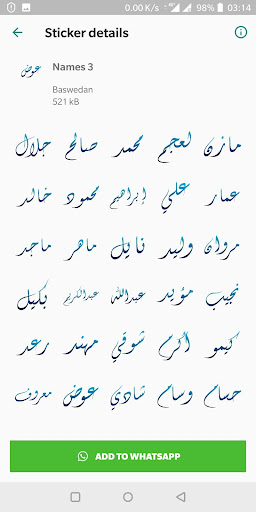 0.00 K/s 4G 98% 03:14
Sticker details
Names 3
عوض
Baswedan
521 kB
مازن لعجم محمد صالح جلال
عمار علي إبراهيم محمود خالد
مروان وليد نايل ماهر ماجد
نجيب مؤيد عبدالله عبدالكريم بكيل
كيمو أكرم شوقي مهند رعد
حسام وسام شادي عوض معروف
ADD TO WHATSAPP